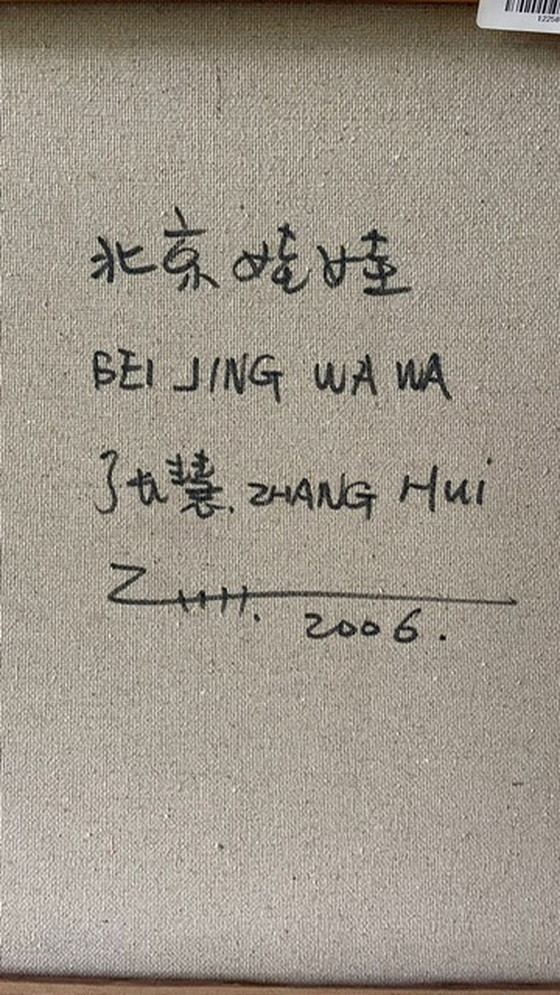 北京娃娃
BEIJING WA WA
张慧. ZHANG Hui
2006.